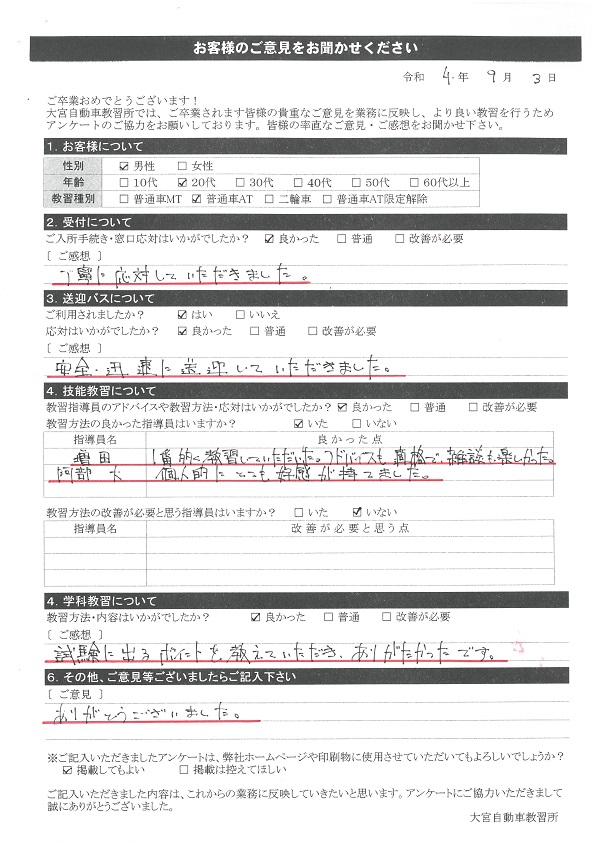 お客様のご意見をお聞かせください
令和 4 年 9 月 3 日
ご卒業おめでとうございます！
大宮自動車教習所では、ご卒業されます皆様の貴重なご意見を業務に反映し、より良い教習を行うため
アンケートのご協力をお願いしております。皆様の率直なご意見・ご感想をお聞かせ下さい。
1. お客様について
性別 ☑ 男性 □ 女性
年齢 □ 10代 ☑ 20代 □ 30代 □ 40代 □ 50代 □ 60代以上
教習種別 □ 普通車MT ☑ 普通車AT □ 二輪車 □ 普通車AT限定解除
2. 受付について
ご入所手続き・窓口応対はいかがでしたか？ ☑ 良かった □ 普通 □ 改善が必要
〔 ご感想 〕
丁寧に応対していただきました。
3. 送迎バスについて
ご利用されましたか？ ☑ はい □ いいえ
応対はいかがでしたか？ ☑ 良かった □ 普通 □ 改善が必要
〔 ご感想 〕
安全・迅速に送迎していただきました。
4. 技能教習について
教習指導員のアドバイスや教習方法・応対はいかがでしたか？ ☑ 良かった □ 普通 □ 改善が必要
教習方法の良かった指導員はいますか？ ☑ いた □ いない
指導員名 良かった点
増田 1番的く教習していただいた。アドバイスも的確で、雑談も楽しかった。
阿部 大 個人的にとても好感が持てました。
教習方法の改善が必要と思う指導員はいますか？ □ いた ☑ いない
指導員名 改善が必要と思う点
4. 学科教習について
教習方法・内容はいかがでしたか？ ☑ 良かった □ 普通 □ 改善が必要
〔 ご感想 〕
試験に出るポイントを教えていただき、ありがたかったです。
6. その他、ご意見等ございましたらご記入下さい
〔 ご意見 〕
ありがとうございました。
※ご記入いただきましたアンケートは、弊社ホームページや印刷物に使用させていただいてもよろしいでしょうか？
☑ 掲載してもよい □ 掲載は控えてほしい
ご記入いただきました内容は、これからの業務に反映していきたいと思います。アンケートにご協力いただきまして
誠にありがとうございました。
大宮自動車教習所